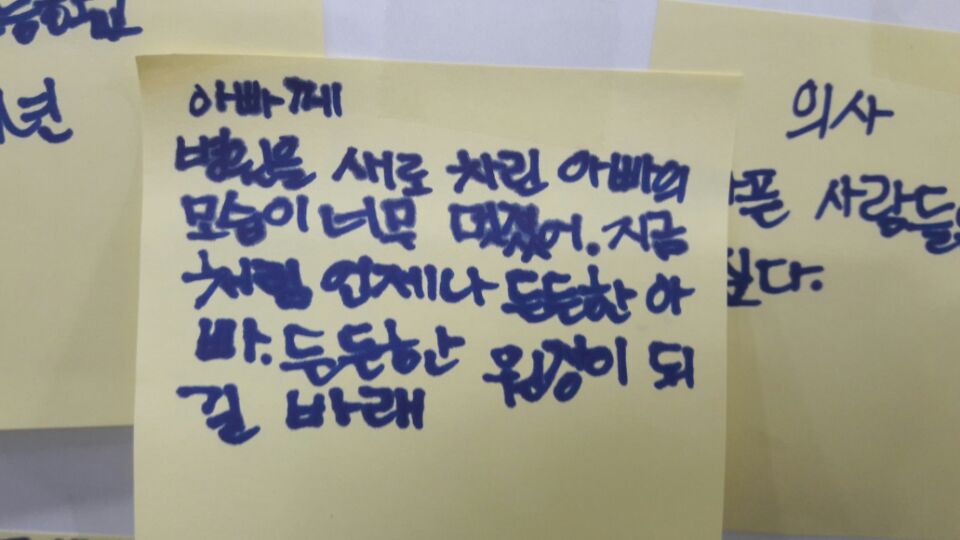 년
아빠께
병원을 새로 차린 아빠의
모습이 너무 멋졌어. 지금
처럼 언제나 든든한 아
빠. 든든한 원장이 되
길 바래
의사
픈 사람들
싶다.